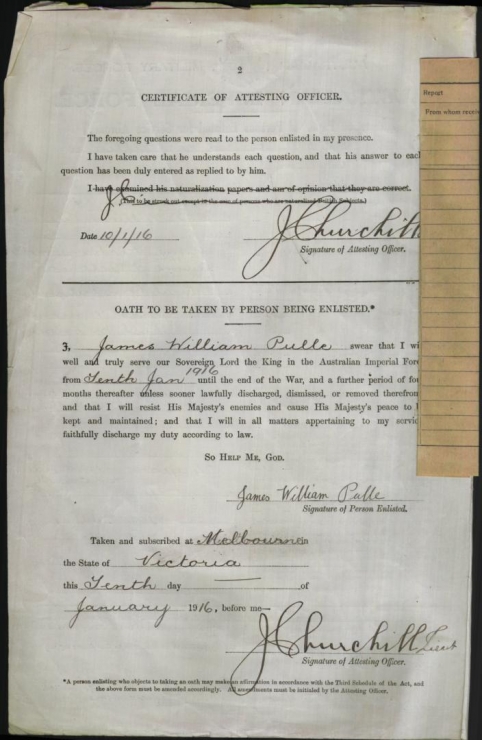 2
CERTIFICATE OF ATTESTING OFFICER.
The foregoing questions were read to the person enlisted in my presence.
I have taken care that he understands each question, and that his answer to each
question has been duly entered as replied to by him.
I have examined his naturalization papers and am of opinion that they are correct.
(This to be struck out except in the case of persons who are naturalized British Subjects.)
Date 10/1/16
J Churchill
Signature of Attesting Officer.
OATH TO BE TAKEN BY PERSON BEING ENLISTED.*
3, James William Pulle swear that I wi
well and truly serve our Sovereign Lord the King in the Australian Imperial Forc
from Tenth Jan 1916 until the end of the War, and a further period of fou
months thereafter unless sooner lawfully discharged, dismissed, or removed therefrom
and that I will resist His Majesty's enemies and cause His Majesty's peace to b
kept and maintained; and that I will in all matters appertaining to my servic
faithfully discharge my duty according to law.
SO HELP ME, GOD.
James William Pulle
Signature of Person Enlisted.
Taken and subscribed at Melbourne in
the State of Victoria
this Tenth day of
January 1916, before me—
J Churchill Lieut
Signature of Attesting Officer.
*A person enlisting who objects to taking an oath may make an affirmation in accordance with the Third Schedule of the Act, and
the above form must be amended accordingly. All amendments must be initialed by the Attesting Officer.
Report
From whom recei